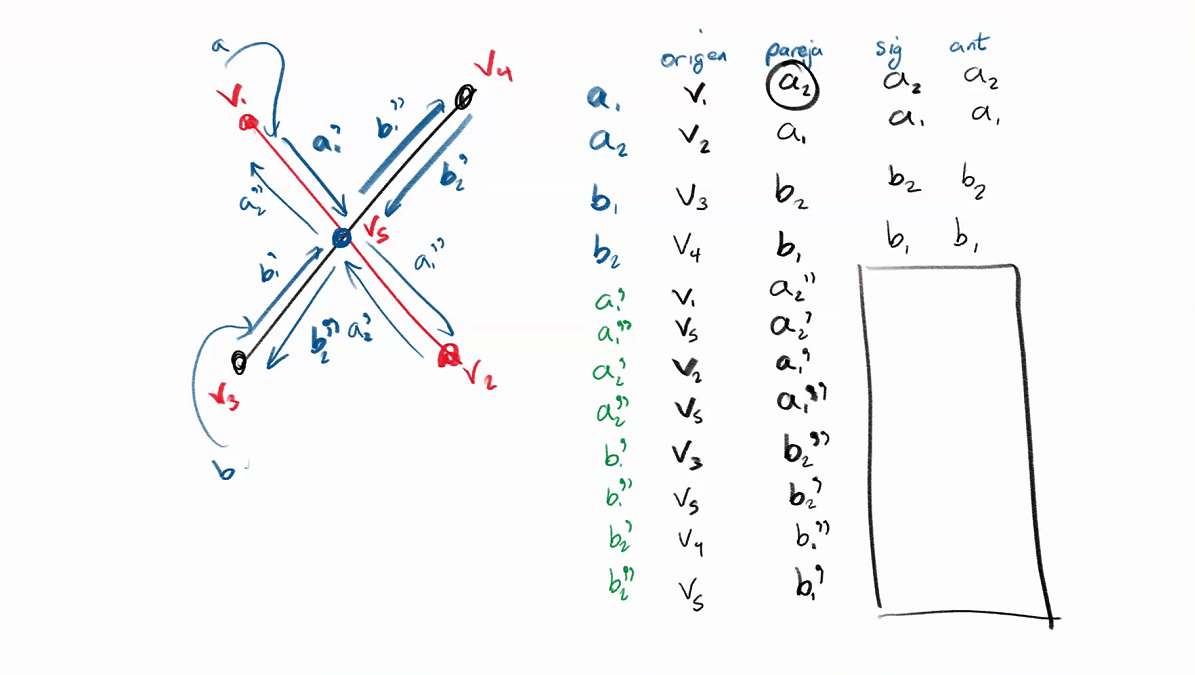 a
V₁
a₁'
a₂''
b₁''
V₄
b₂'
V₅
a₁''
b₁'
b₂''
a₂'
V₃
V₂
b
origen pareja sig ant
a₁ V₁ a₂ a₂ a₂
a₂ V₂ a₁ a₁ a₁
b₁ V₃ b₂ b₂ b₂
b₂ V₄ b₁ b₁ b₁
a₁' V₁ a₂''
a₁'' V₅ a₂'
a₂' V₂ a₁'
a₂'' V₅ a₁''
b₁' V₃ b₂''
b₁'' V₅ b₂'
b₂' V₄ b₁''
b₂'' V₅ b₁'